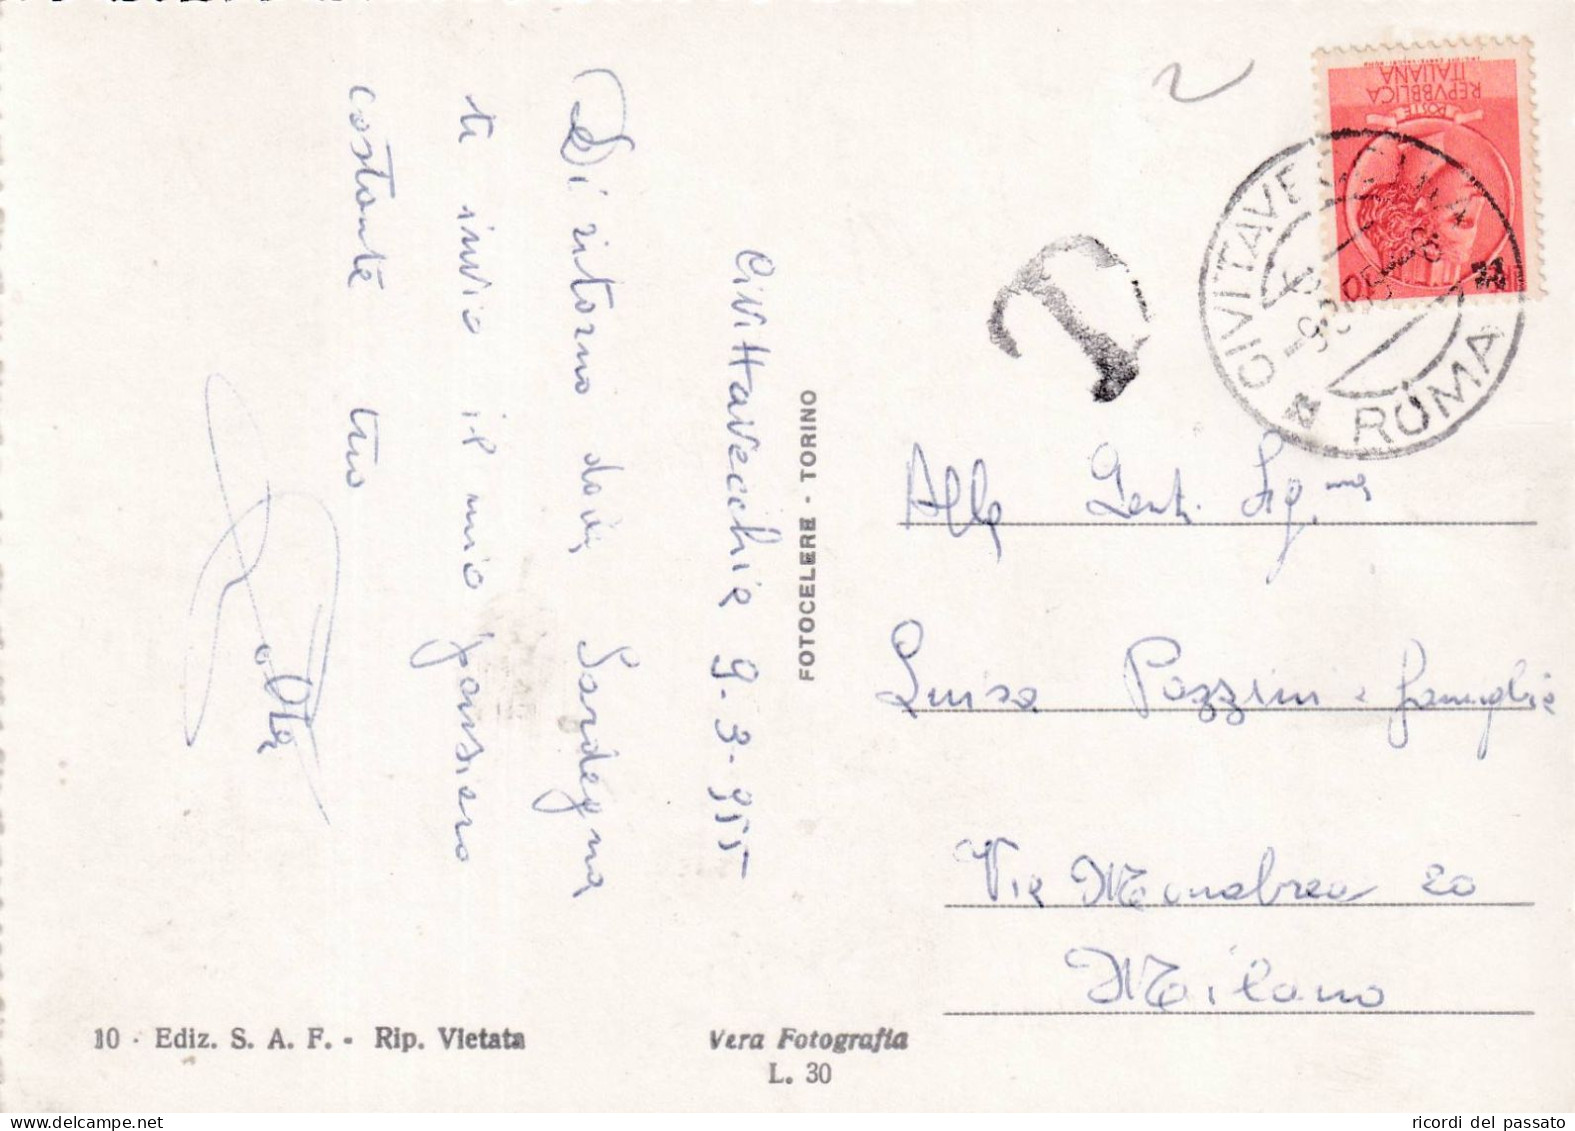 Civittavecchia 9-3-955
Di ritorno dalla Sardegna
ti invio il mio pensiero
costante tuo
FOTOCELERE - TORINO
POSTE
REPVBBLICA
ITALIANA
CIVITAVECCHIA
ROMA
T
Alla Gent. Sig.na
Luisa Pozzini e famiglia
Via Monabrea 20
Milano
10 - Ediz. S. A. F. - Rip. Vietata
Vera Fotografia
L. 30
ricordi del passato